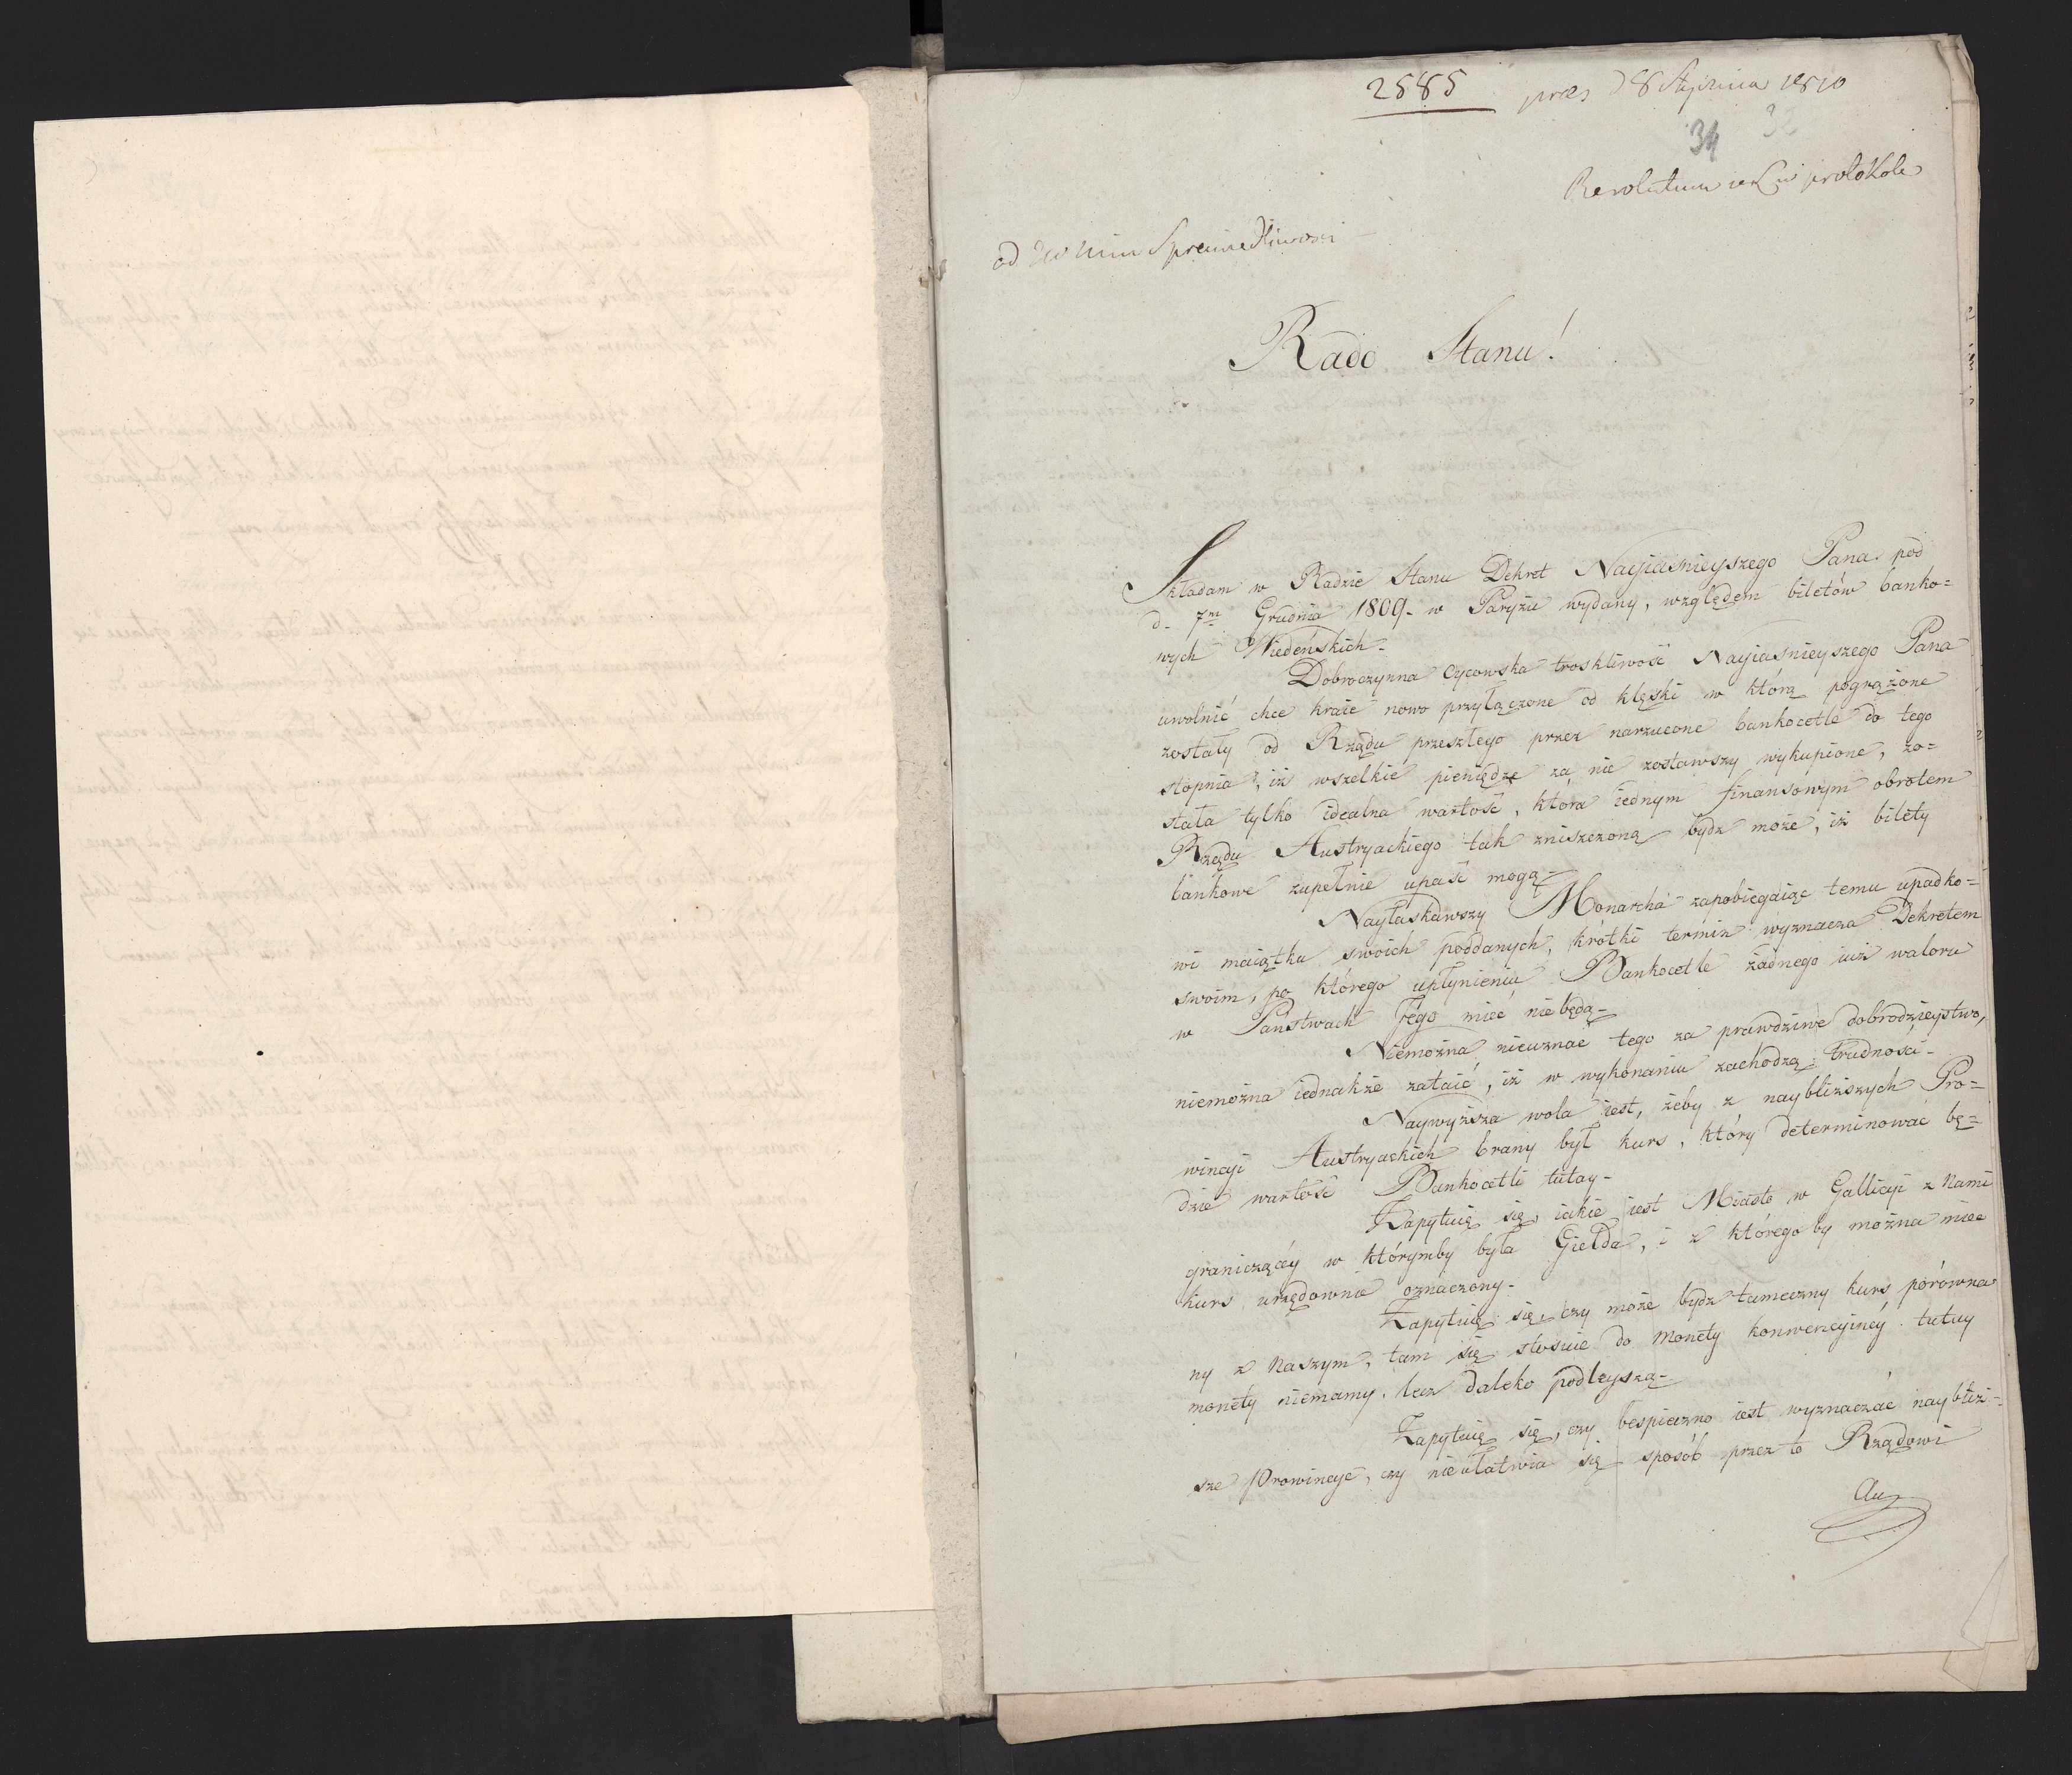 2585 prez d 8 Stycznia 1810
34 32
Resolutum iest w protokole
od JW Min Sprawiedliwosci
Rado Stanu!
Składam w Radzie Stanu Dekret Nayiasnieyszego Pana pod
d. 7m Grudnia 1809. w Paryżu wydany, względem biletów banko=
wych Wiedeńskich.
Dobroczynna Oycowska troskliwość Nayiasnieyszego Pana
uwolnić chce kraie nowo przyłączone od klęski w którą pogrążone
zostały od Rządu przeszłego przez narzucone bankocetle do tego
stopnia, iż wszelkie pieniądze za nie zostawszy wykupione, zo=
stała tylko idealna wartość, która iednym finansowym obrotem
Rządu Austryackiego tak zniszczoną bydz może, iż bilety
bankowe zupełnie upaść mogą.
Nayłaskawszy Monarcha zapobiegaiąc temu upadko=
wi maiątku swoich poddanych, krótki termin wyznacza Dekretem
swoim, po którego upłynieniu Bankocetle żadnego iuż waloru
w Państwach Jego mieć nie będą.
Niemożna nieuznać tego za prawdziwe dobrodzieystwo,
niemożna iednakże zataić, iż w wykonaniu zachodzą trudności.
Naywyższa wola iest, żeby z naybliższych Pro=
wincyi Austryackich brany był kurs, który determinować bę=
dzie wartość Bankocetli tutay.
Zapytuię się, iakie iest Miasto w Gallicyi z Nami
graniczącéy w którymby była Giełda, i z któregoby można mieć
kurs urzędownie oznaczony.
Zapytuię się, czy może bydz tameczny kurs porówna
ny z Naszym, tam się stosuie do Monety konwencyinéy. tutay
monety niemamy. lecz daleko podleyszą.
Zapytuię się, czy bespieczno iest wyznaczać naybliż=
sze Prowincye, czy nie ułatwia się sposób przez to Rządowi
Au